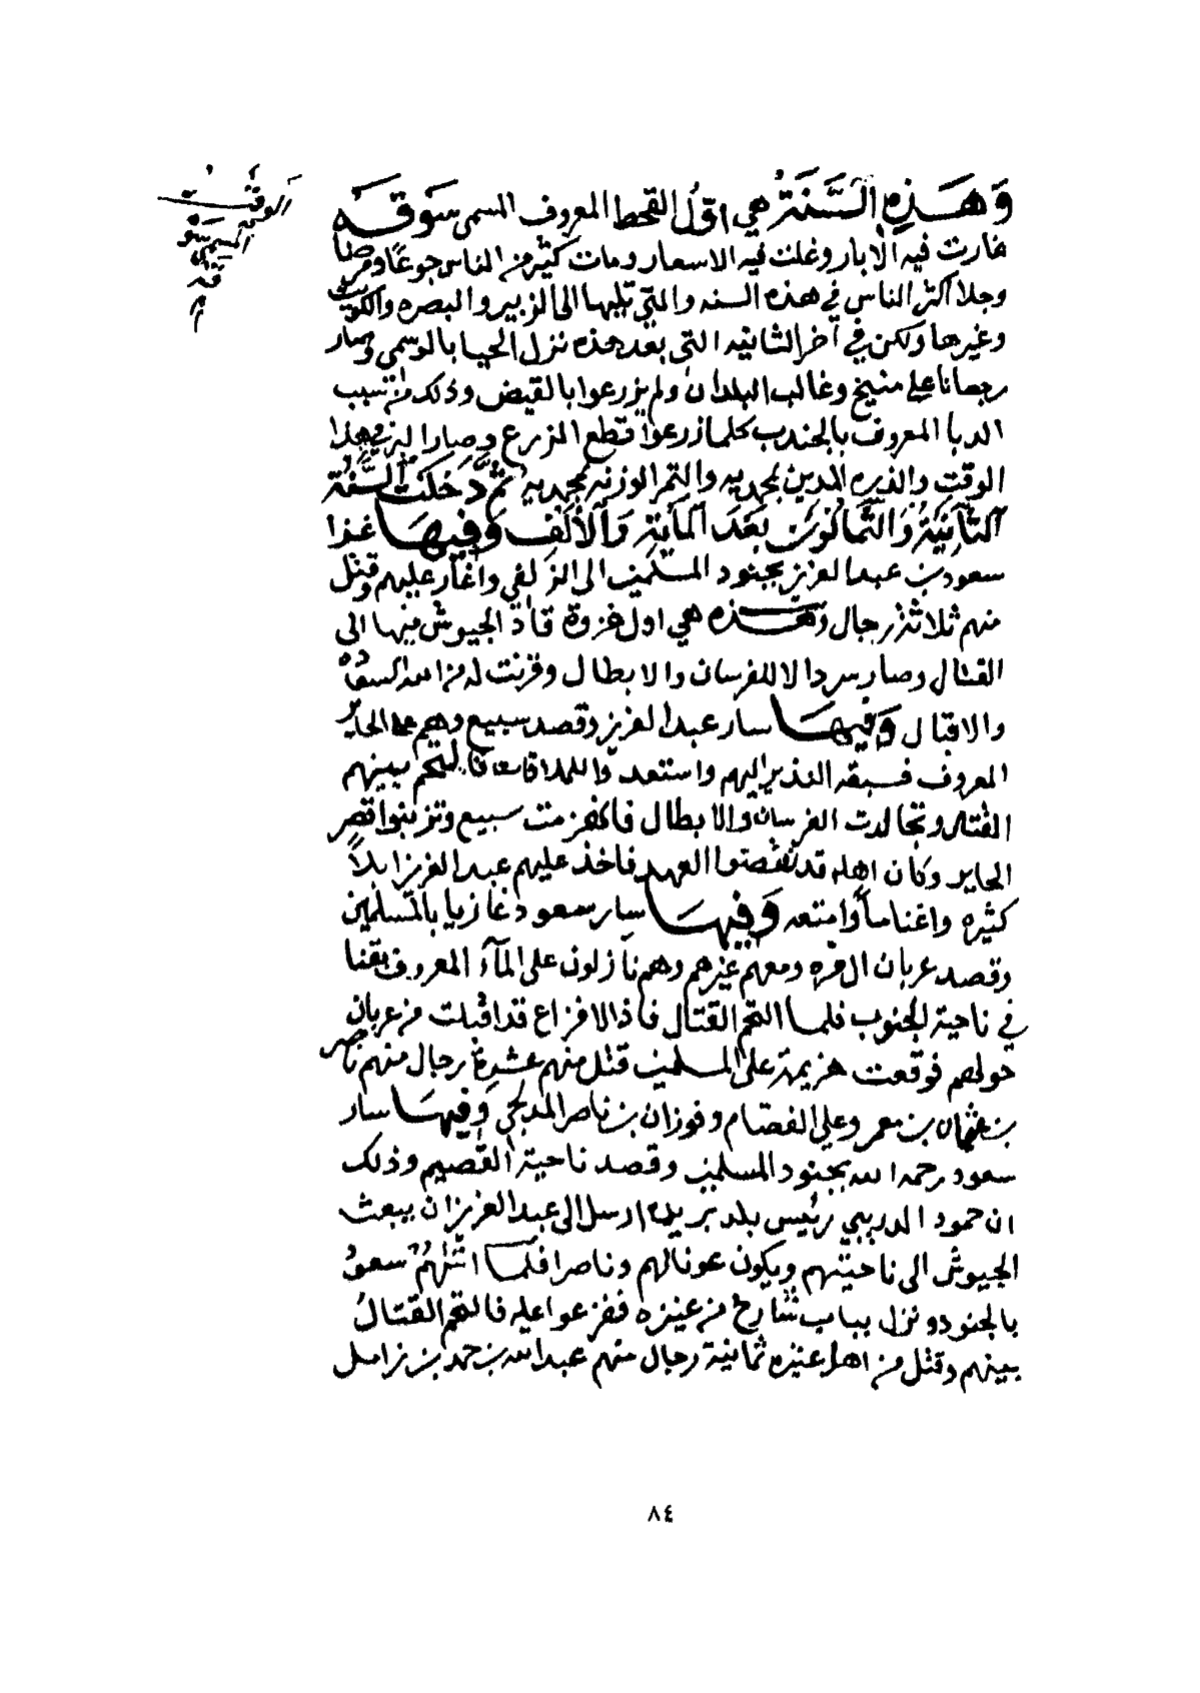 وَهَذِهِ السَّنَةُ هي اوّلُ القحط المعروف المسمى سَوقَه
غارت فيه الآبار وغلت فيه الاسعار ومات كثير من الناس جوعًا ومرضا
وجلا اكثر الناس في هذه السنه والتي تليها الى الزبير والبصره والكويت
وغيرها ولكن في آخر الثانيه التي بعد هذه نزل الحيا بالوسمي وصار
رجعانا على منيخ وغالب البلدان ولم يزرعوا بالقيض وذلك من سبب
الدبا المعروف بالجندب كلما زرعوا قطع الزرع وصار البر في هذا
الوقت والذره المدين بمحمديه والتمر الوزنه بمحمديه ثُمَّ دَخَلَت السَّنَةُ
الثَّانِيَةُ وَالثَّمَانُونَ بَعْدَ المِايَةِ وَالأَلْف وَفِيهَا غزا
سعود بن عبدالعزيز بجنود المسلمين الى الزلفي واغار عليهم وقتل
منهم ثلاثة رجال وهذه هي اول غزوة قاد الجيوش فيها الى
القتال وصار سردالا للفرسان والابطال وقرنت له من الله السعاده
والاقبال وَفِيهَا سار عبدالعزيز وقصد سبيع وهم على الحاير
المعروف فسبقه النذير اليهم واستعدوا للملاقات فالتحم بينهم
القتال وتجالدت الفرسان والابطال فانهزمت سبيع وتزبنوا قصر
الحاير وكان اهله قد نقضوا العهد فاخذ عليهم عبدالعزيز ابلاً
كثيره واغناما وامتعه وَفِيهَا سار سعود غازيا بالمسلمين
وقصد عربان ال مره ومعهم غيرهم وهم نازلون على المآء المعروف بقنا
في ناحية الجنوب فلما التحم القتال فاذا الافزاع قد اقبلت من عربان
حولهم فوقعت هزيمة على المسلمين قتل منهم عشرة رجال منهم ناصر
بن عثمان بن معمر وعلي الفصام وفوزان بن ناصر المدلجي وَفِيهَا سار
سعود رحمه الله بجنود المسلمين وقصد ناحية القصيم وذلك
ان حمود الدريبي رئيس بلد بريده ارسل الى عبدالعزيز ان يبعث
الجيوش الى ناحيتهم ويكون عونا لهم وناصرا فلما اتاهُم سعودُ
بالجنود ونزل بباب شارخ من عنيزه ففزعوا عليه فالتحم القتالُ
بينهم وقتل من اهل عنيزه ثمانية رجال منهم عبدالله بن حمد بن زامل
الوقت
المسمى سو
قه
٨٤